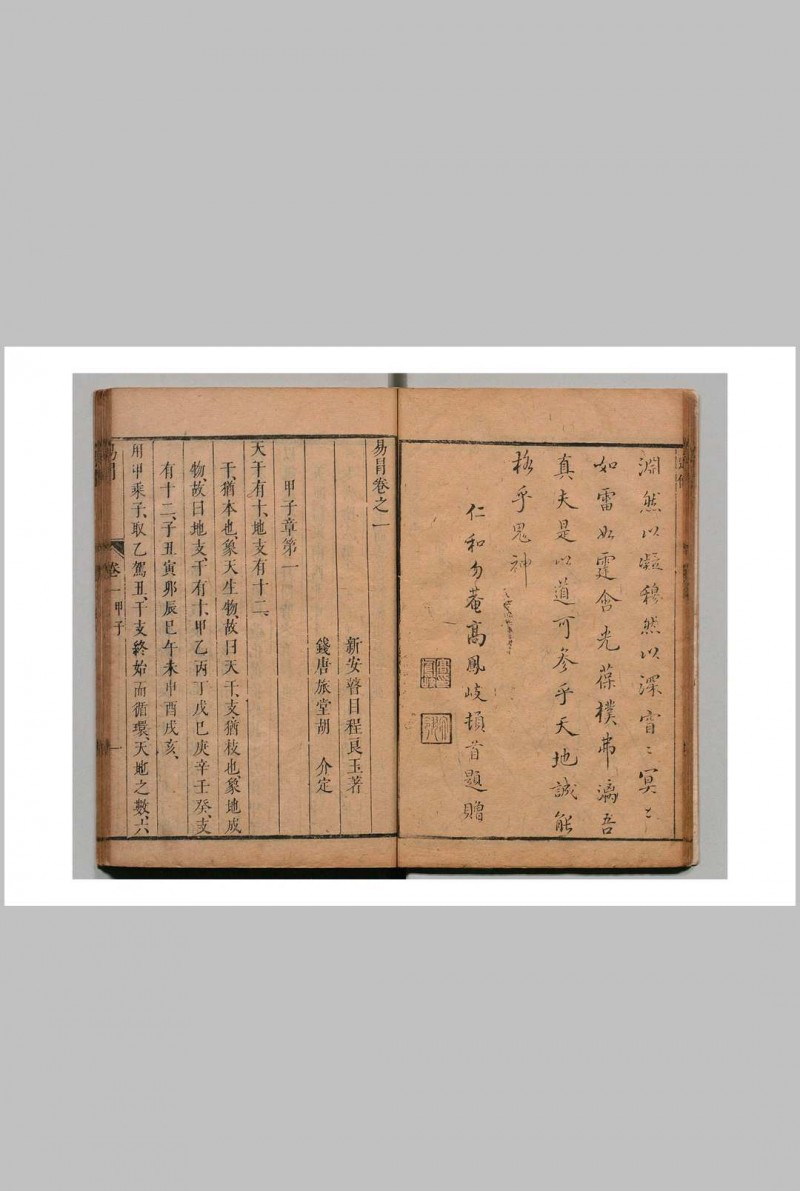 淵然以凝穆然以深窅〻冥〻
如雷如霆含光葆樸弗漓吾
真夫是以道可參乎天地誠能
格乎鬼神
仁和勿菴高鳳岐頓首題贈
易冒卷之一
新安瞽目程良玉著
錢唐旅堂胡　介定
甲子章第一
天干有十、地支有十二、
干、猶本也、象天生物、故曰天干、支、猶枝也、象地成
物、故曰地支、干有十、甲乙丙丁戊巳庚辛壬癸、支
有十二、子丑寅卯辰巳午未申酉戌亥、
用甲乘子、取乙駕丑、干支終始而循環、天地之數、六
易冒
卷一
甲子
一